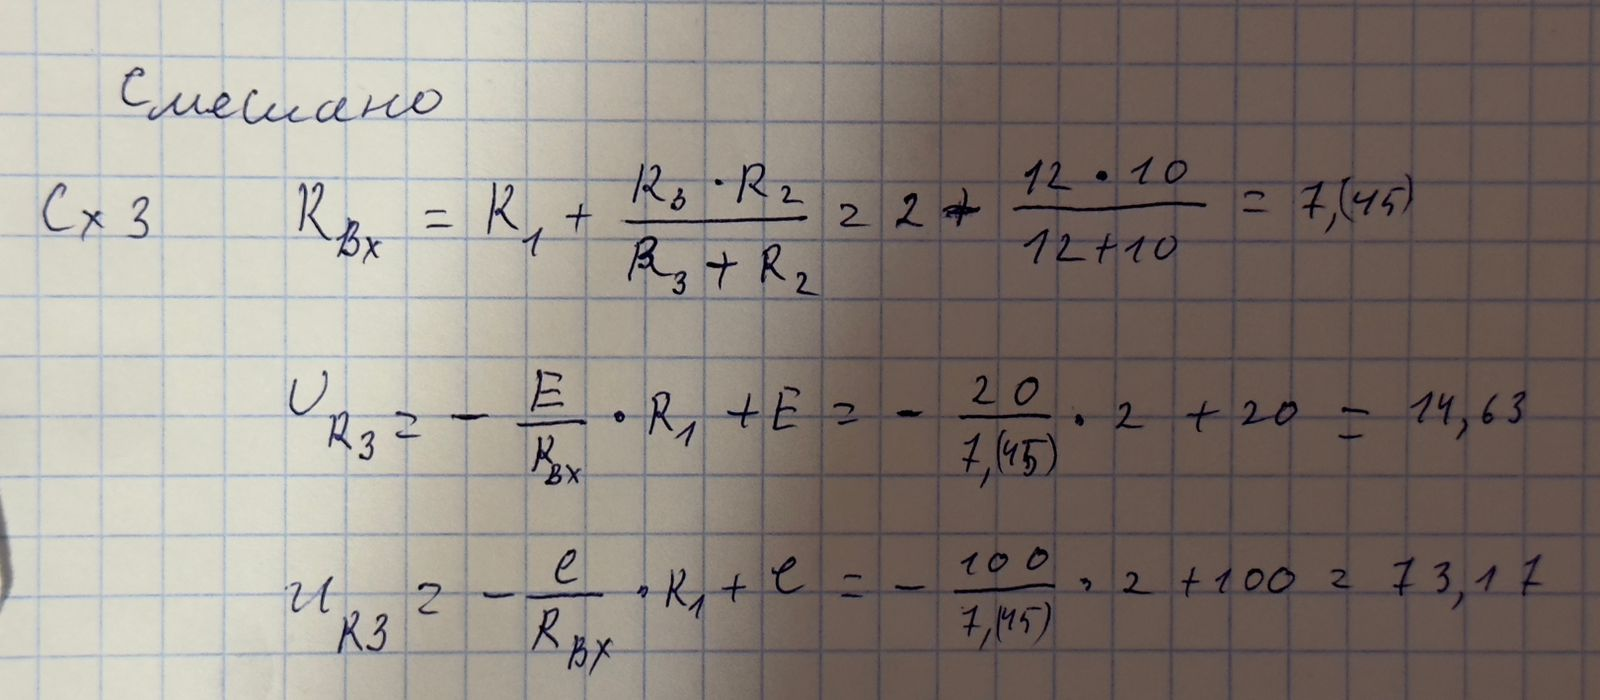 Смешано
Сх 3 R_Вх = R_1 + (R_3 · R_2)/(R_3 + R_2) = 2 + (12 · 10)/(12 + 10) = 7,(45)
U_R3 = - E/R_Вх · R_1 + E = - 20/7,(45) · 2 + 20 = 14,63
u_R3 = - e/R_Вх · R_1 + e = - 100/7,(45) · 2 + 100 = 73,17